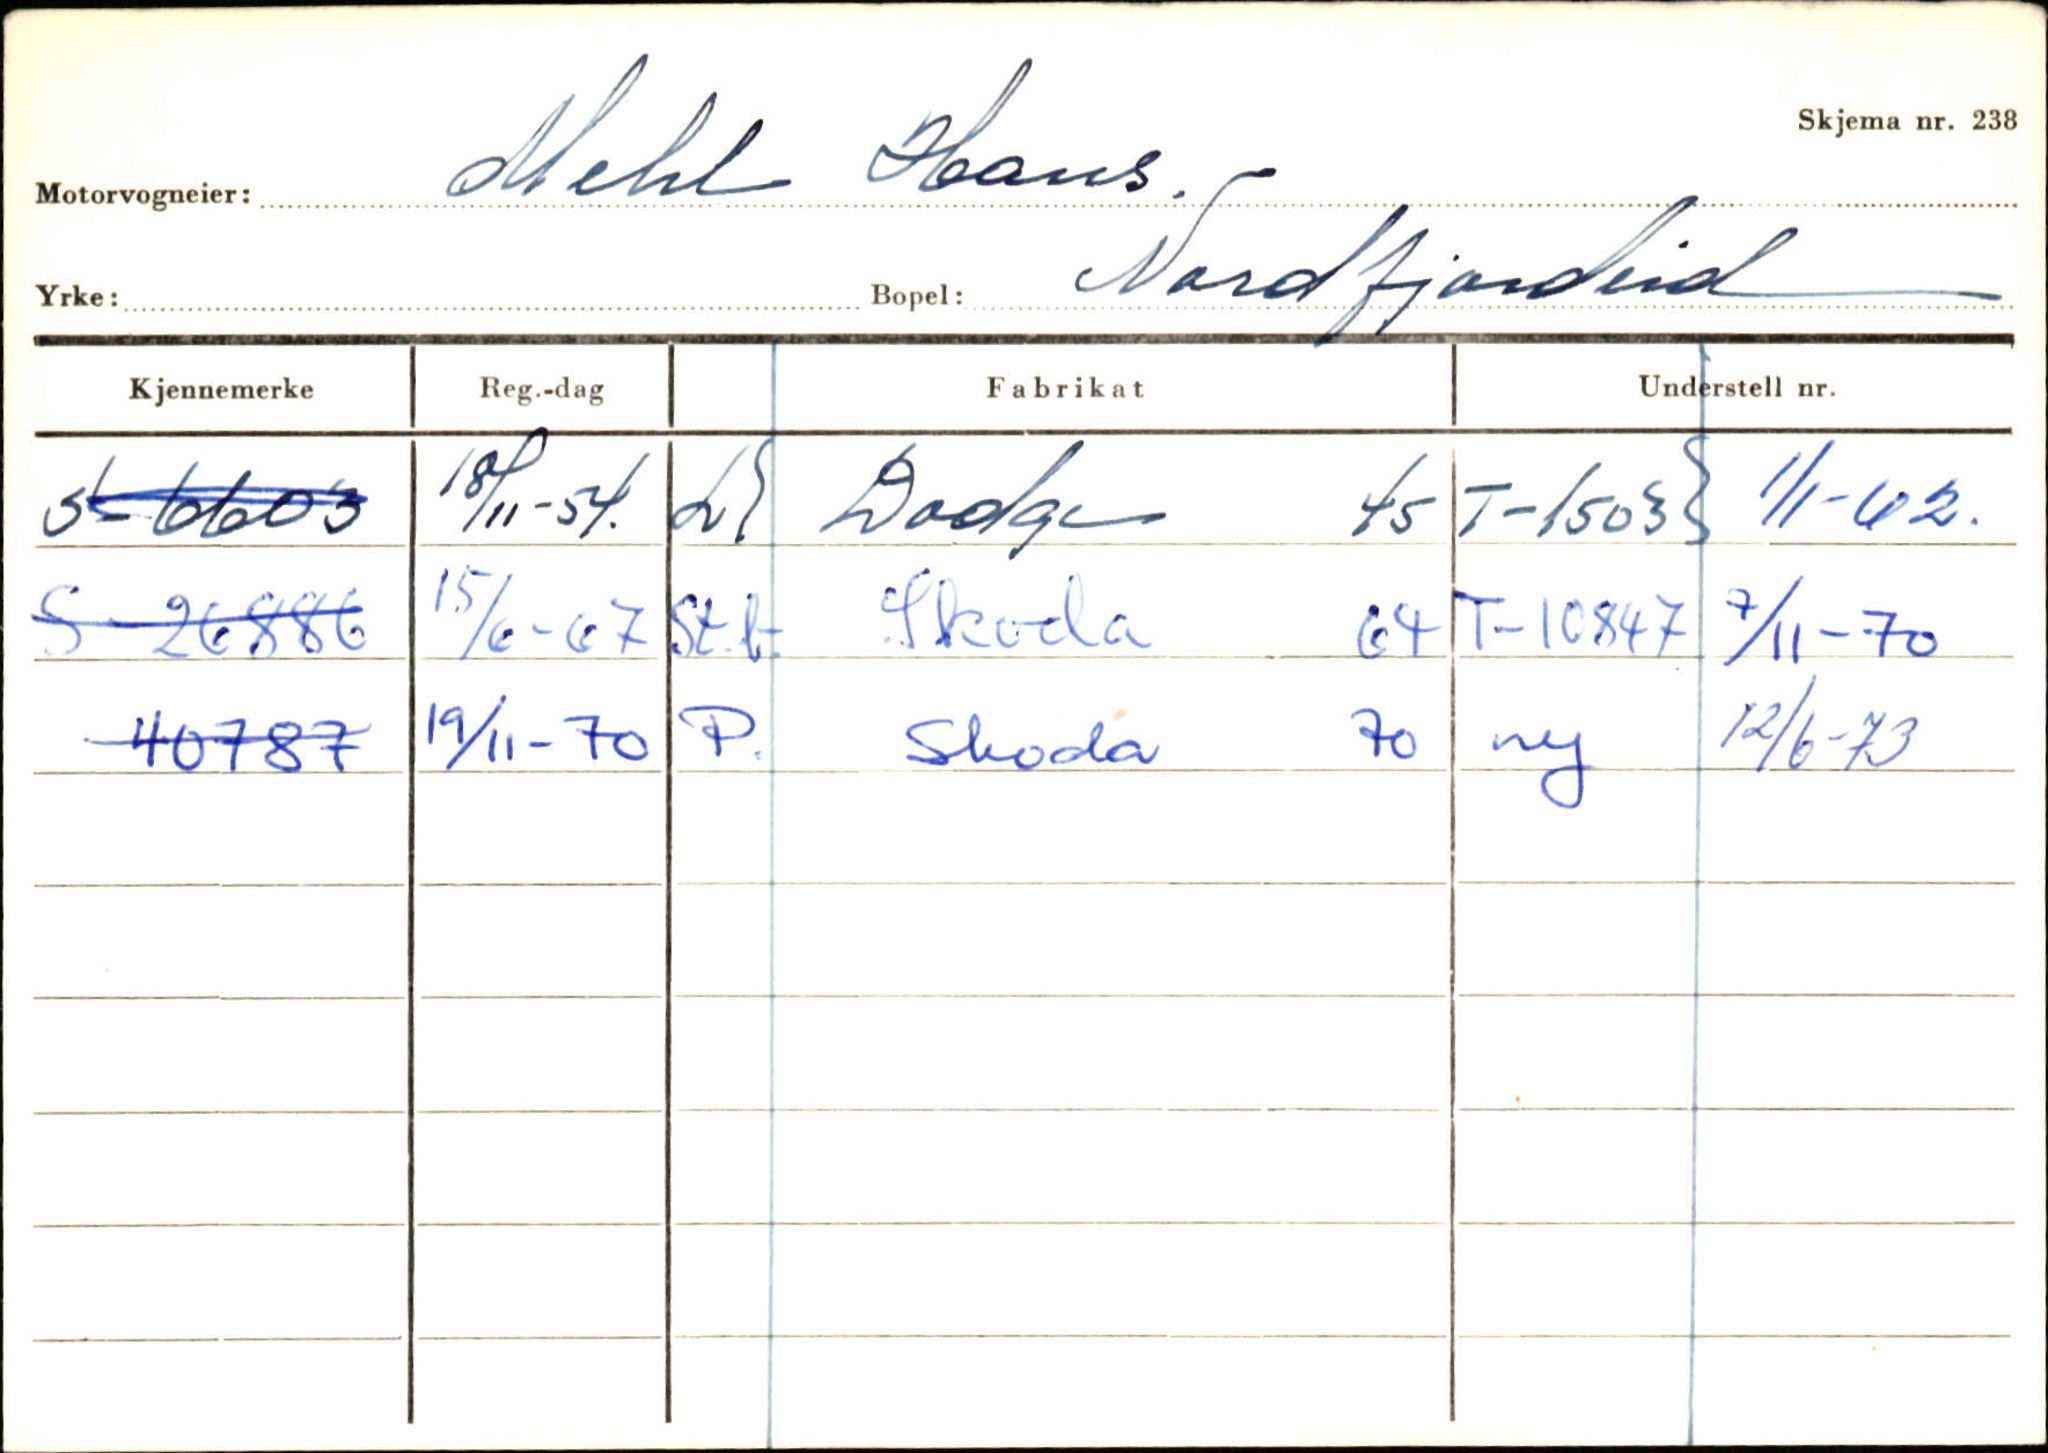 Skjema nr. 238
Motorvogneier: Mehl Hans.
Yrke: Bopel: Nordfjordeid
Kjennemerke Reg.-dag Fabrikat Understell nr.
S-6603 18/11-54. L Dodge 45 T-1503 1/1-62.
S-26886 15/6-67 St.b. Skoda 64 T-10847 7/11-70
40787 19/11-70 P. Skoda 70 ny 12/6-73